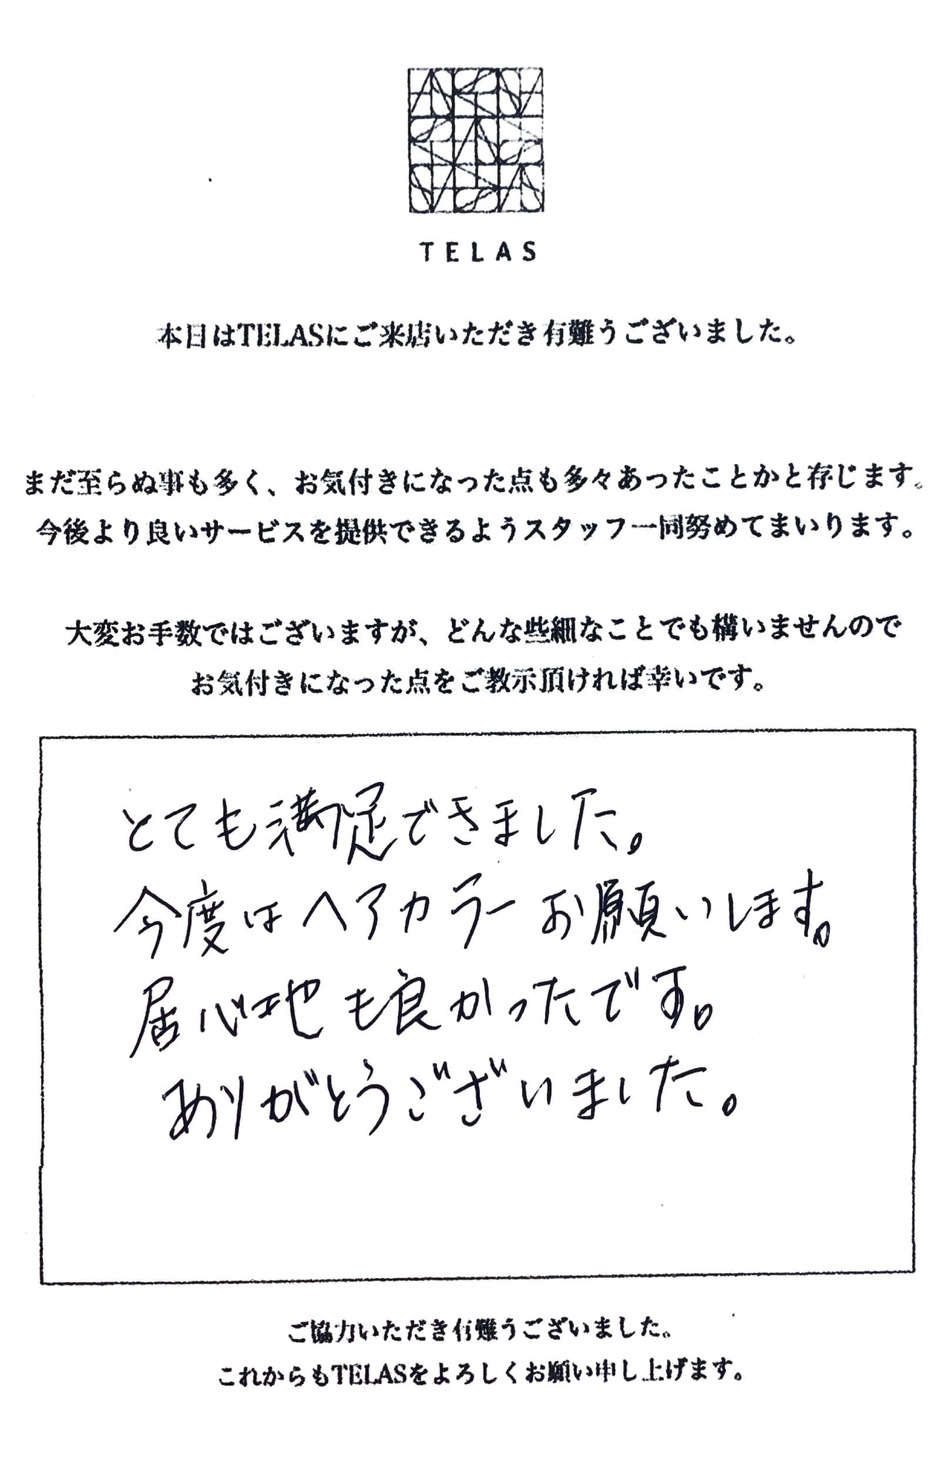 TELAS
本日はTELASにご来店いただき有難うございました。
まだ至らぬ事も多く、お気付きになった点も多々あったことかと存じます。
今後より良いサービスを提供できるようスタッフ一同努めてまいります。
大変お手数ではございますが、どんな些細なことでも構いませんので
お気付きになった点をご教示頂ければ幸いです。
とても満足できました。
今度はヘアカラーお願いします。
居心地も良かったです。
ありがとうございました。
ご協力いただき有難うございました。
これからもTELASをよろしくお願い申し上げます。